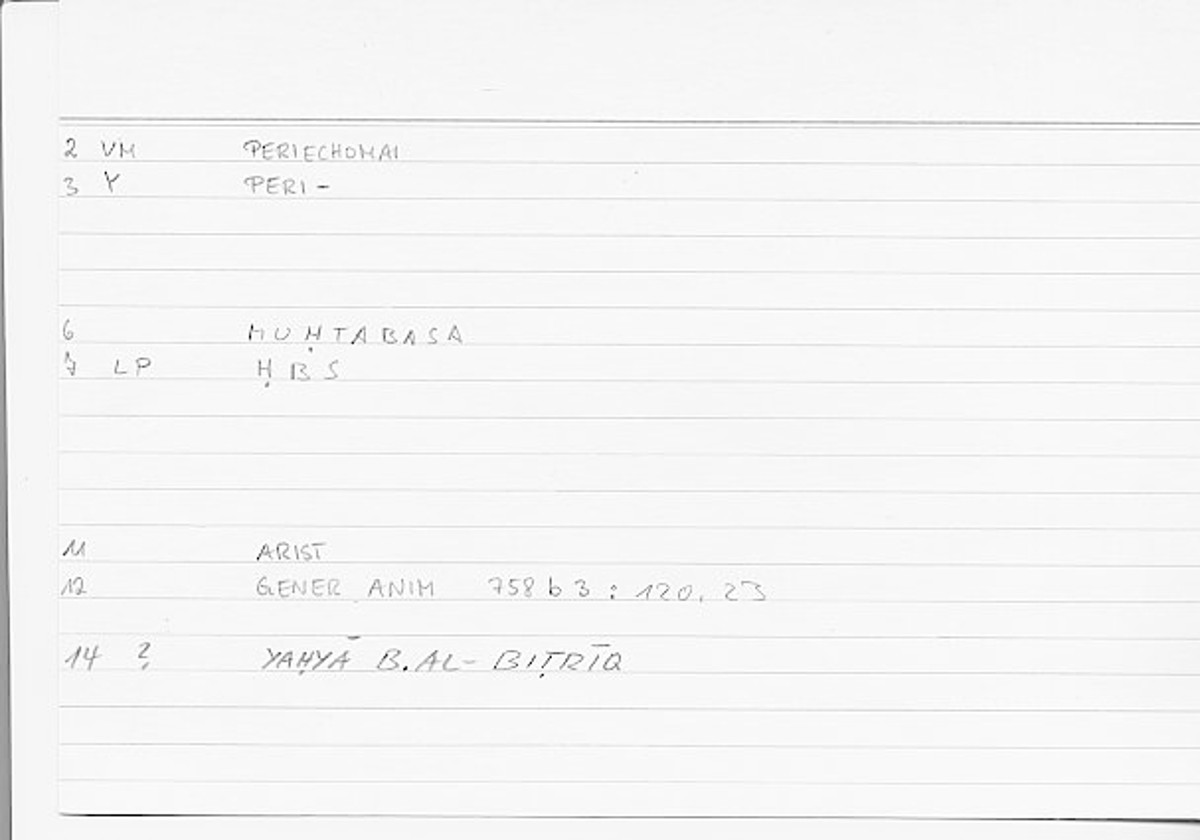 2 VM PERIECHOMAI
3 Y PERI-
6 MUḤTABASA
7 LP ḤBS
11 ARIST
12 GENER ANIM 758 b 3 : 120, 23
14 ? YAḤYĀ B. AL-BIṬRĪQ